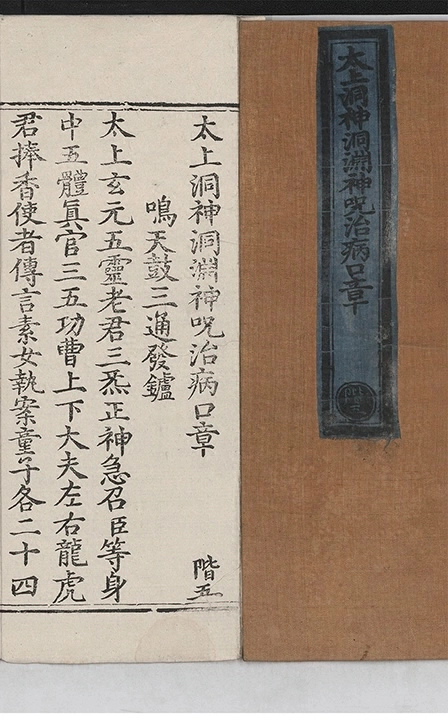 太上洞神洞淵神呪治病口章
太上洞神洞淵神呪治病口章 階五
鳴天鼓三通發鑪
太上玄元五靈老君三炁正神急召臣等身
中五體真官三五功曹上下大夫左右龍虎
君捧香使者傳言素女執案童子各二十四